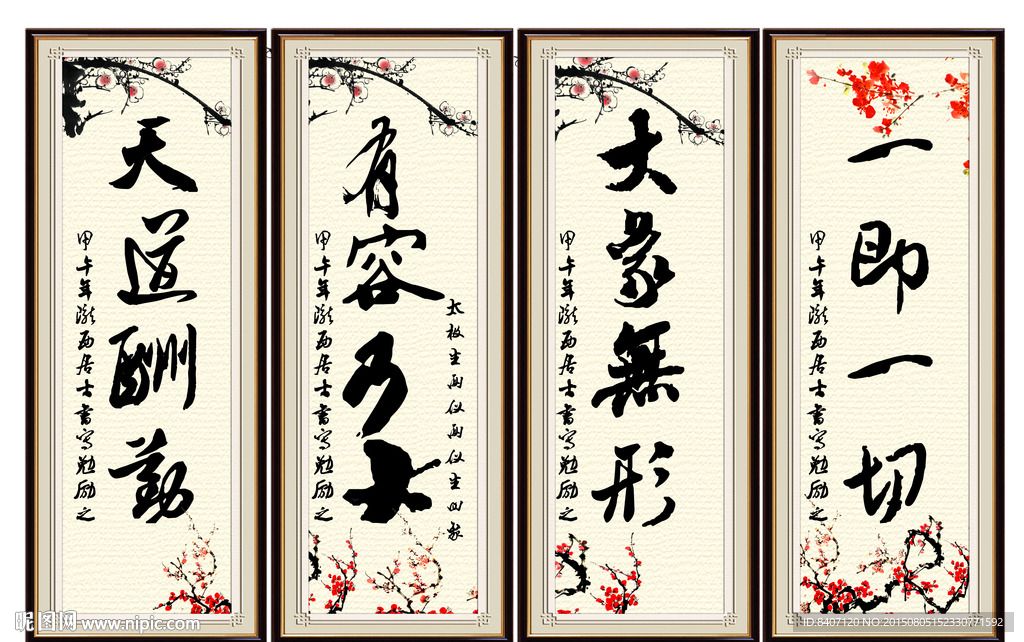 天道酬勤
甲午年瀧西居士書寫勉励之
有容乃大
甲午年瀧西居士書寫勉励之
太极生两仪两仪生四象
大象無形
甲午年瀧西居士書寫勉励之
一即一切
甲午年瀧西居士書寫勉励之
昵图网 www.nipic.com
ID:8407120 NO:20150805152330771592